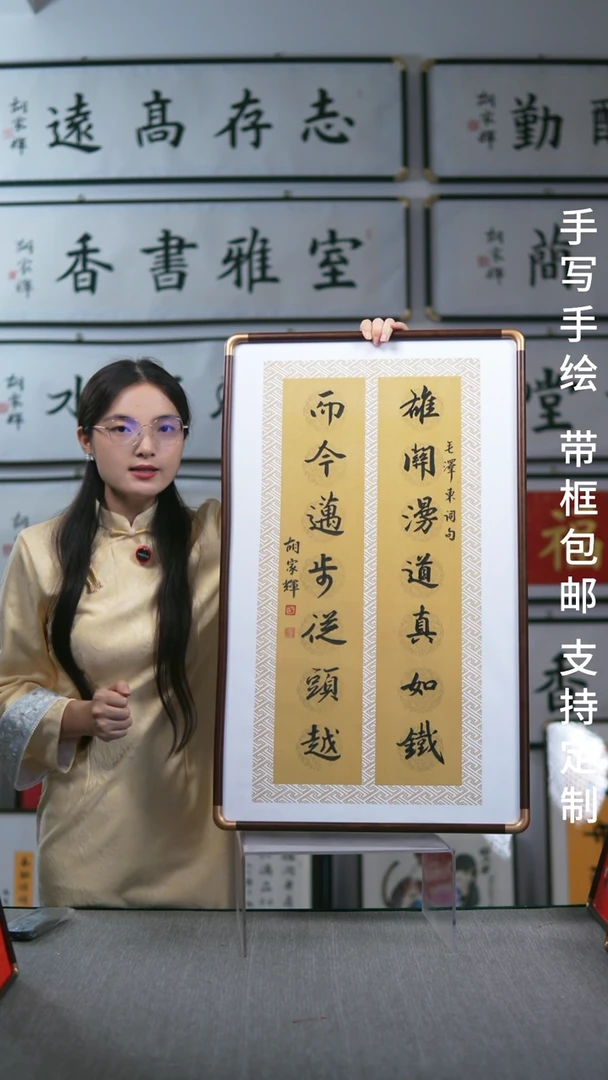 志存高遠
胡家輝
勤
胡家輝
室雅書香
胡家輝
胡家輝
水
胡家輝
堂
福
香
雄關漫道真如鐵
毛澤東词句
而今邁步從頭越
胡家輝
手写手绘 带框包邮 支持定制